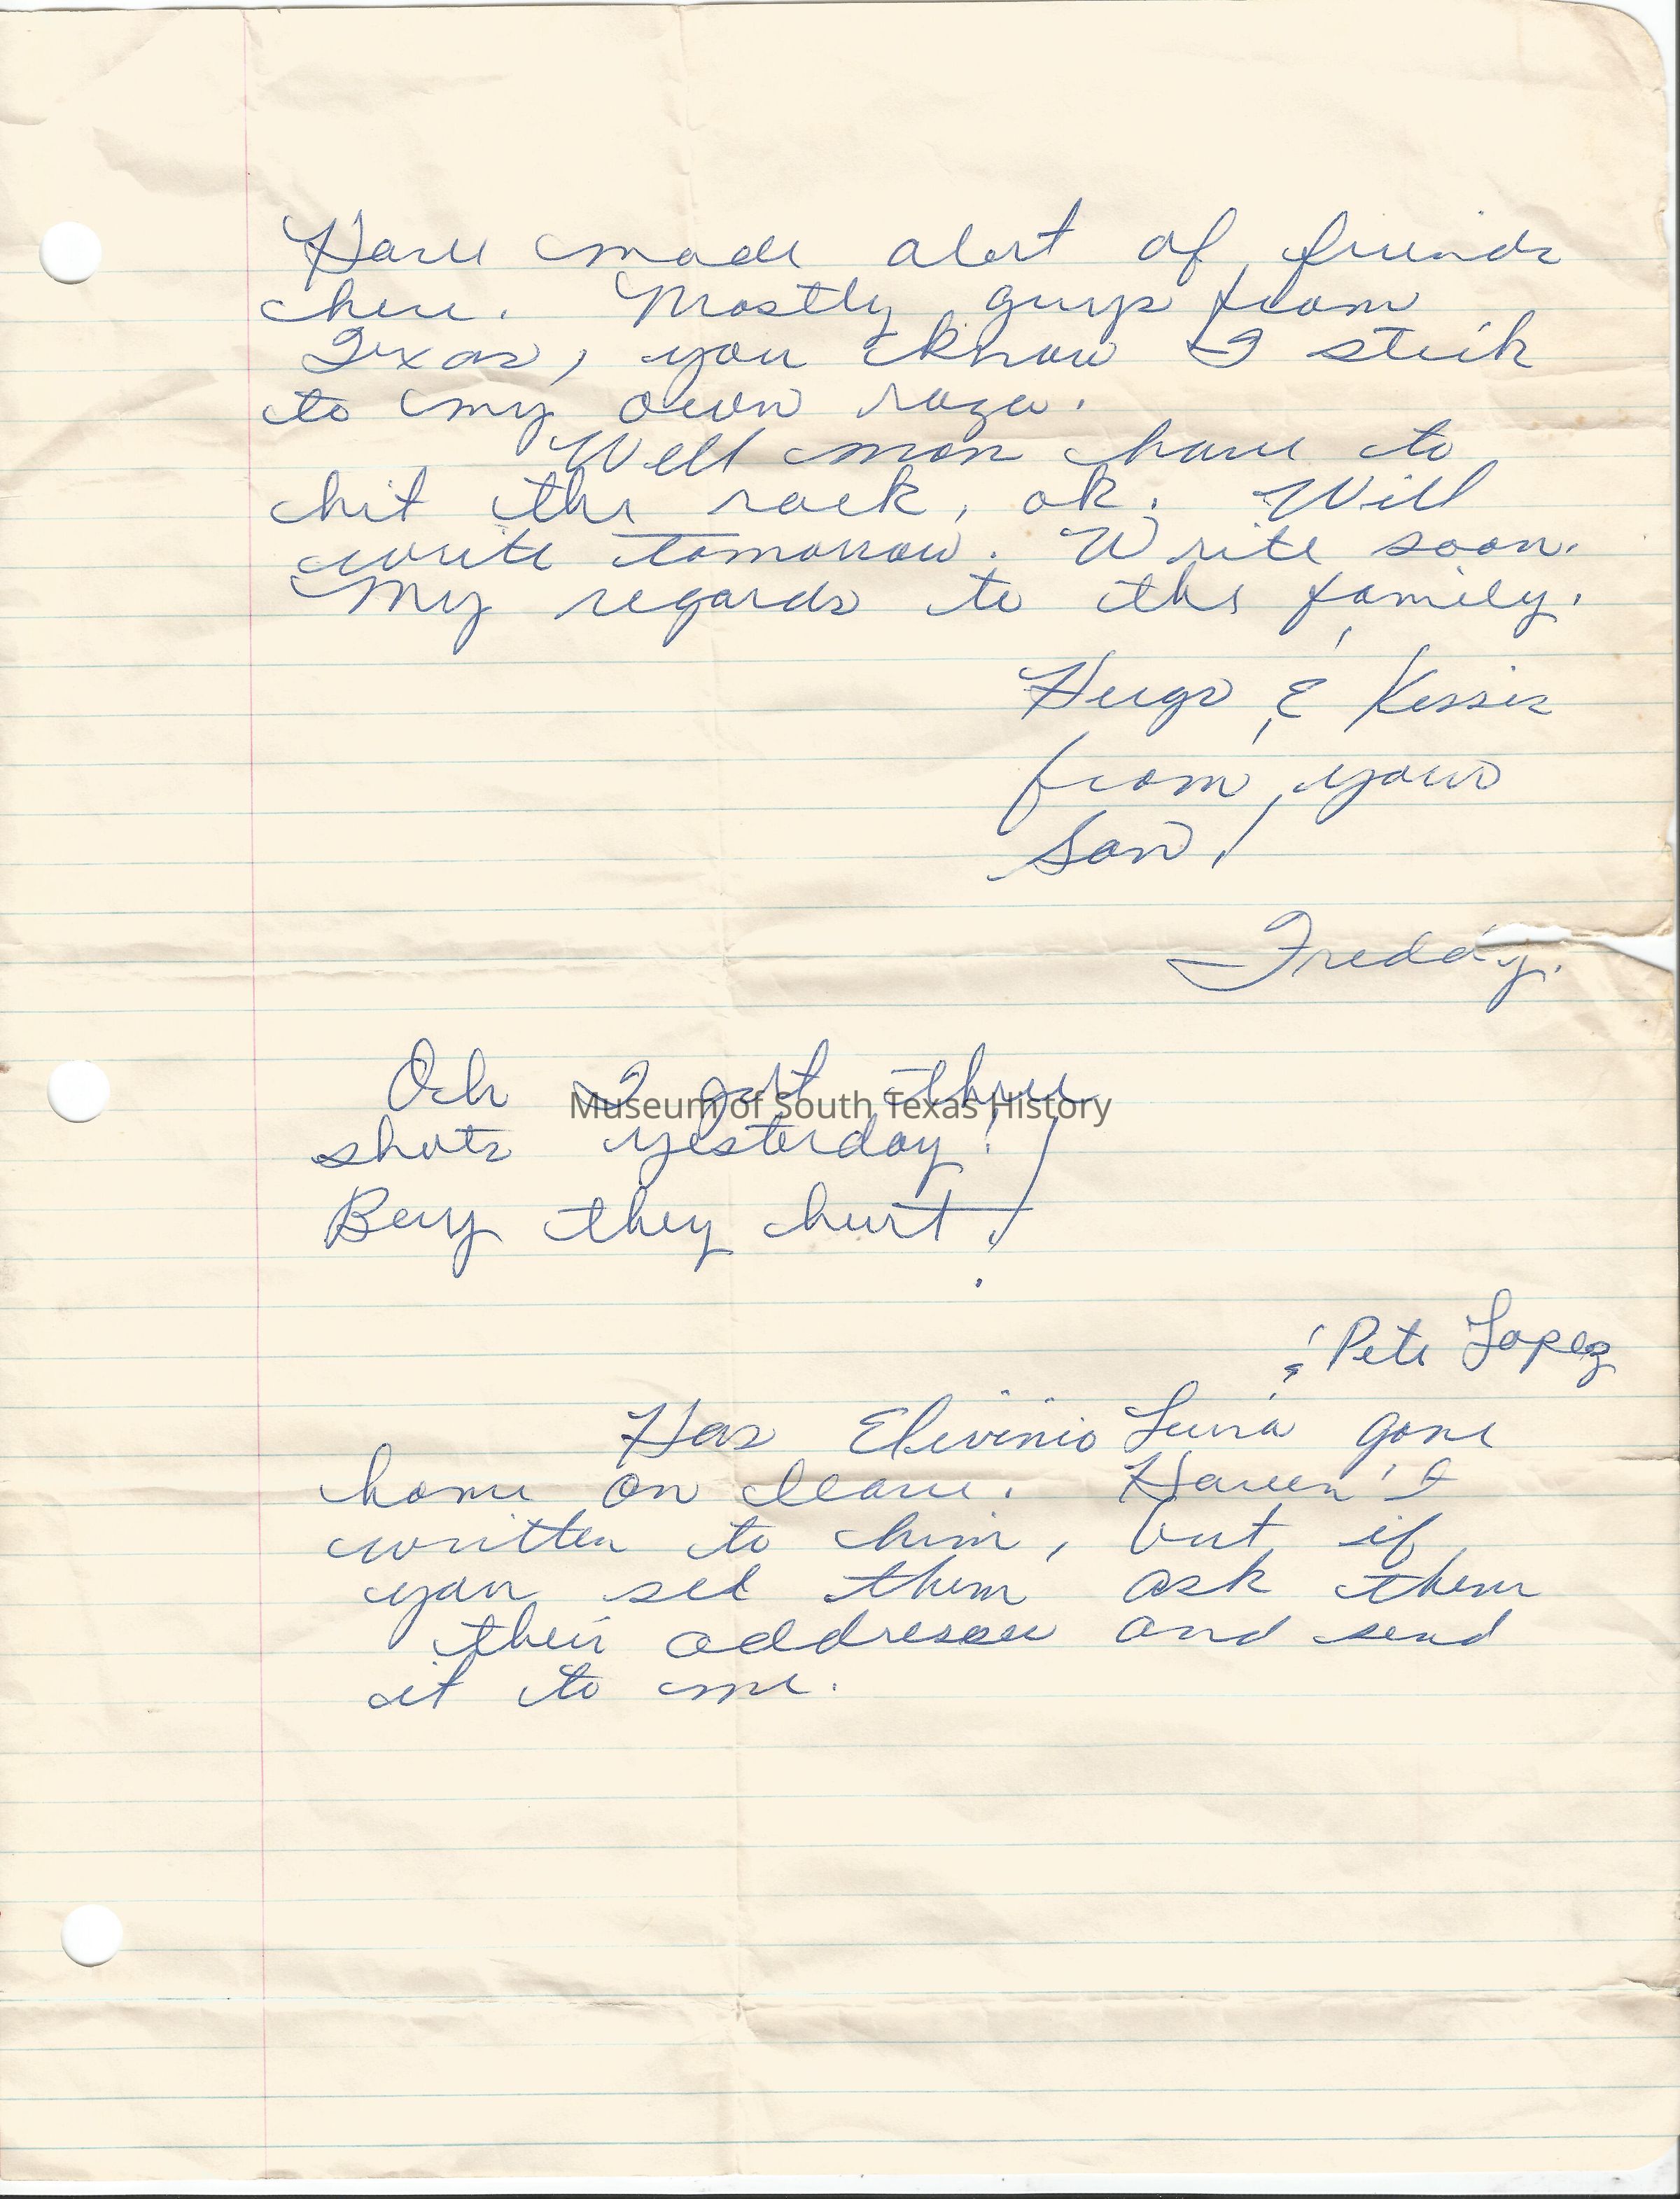 Have made alort of friends
here. Mostly guys from
Texas, you know I stick
to my own raza.
Well mom have to
hit the rack, ok. Will
write tomorrow. Write soon.
My regards to the family.
Hugs & Kisses
from your
Son!
Freddy.
Och I got three
shots yesterday!
Boy they hurt!
Museum of South Texas History
& Pete Lopez
Has Elivinio Luna gone
home on leave. Haven't
written to him, but if
you see them ask them
their addresses and send
it to me.